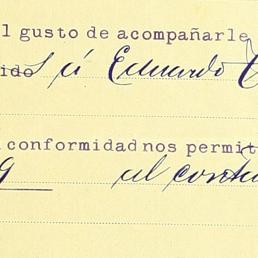 l gusto de acompañarle
ido s á Eduardo
conformidad nos permit
9 al cont